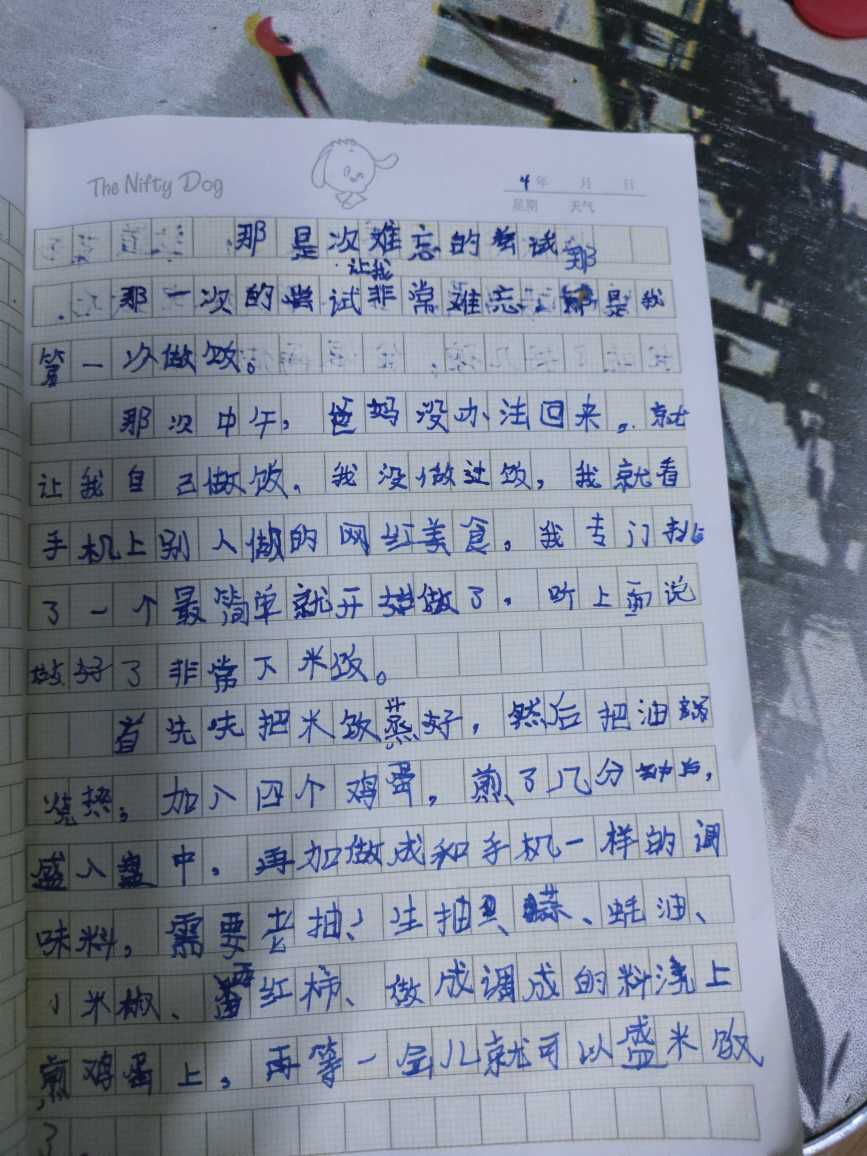 The Nifty Dog
4年 月 日
星期 天气
那是次难忘的尝试
那一次的尝试让我非常难忘,那是我
第一次做饭。
那次中午,爸妈没办法回来,就
让我自己做饭、我没做过饭,我就看
手机上别人做的网红美食。我专门挑
了一个最简单就开始做了,听上面说
做好了非常下米饭。
首先先把米饭蒸好,然后把油
烧热,加入四个鸡蛋,煎了几分钟后,
盛入盘中。再加做成和手机一样的调
味料,需要老抽、生抽、蚝油、
小米椒、西红柿、做成调成的料浇上
煎鸡蛋上,再等一会儿就可以盛米饭
了。